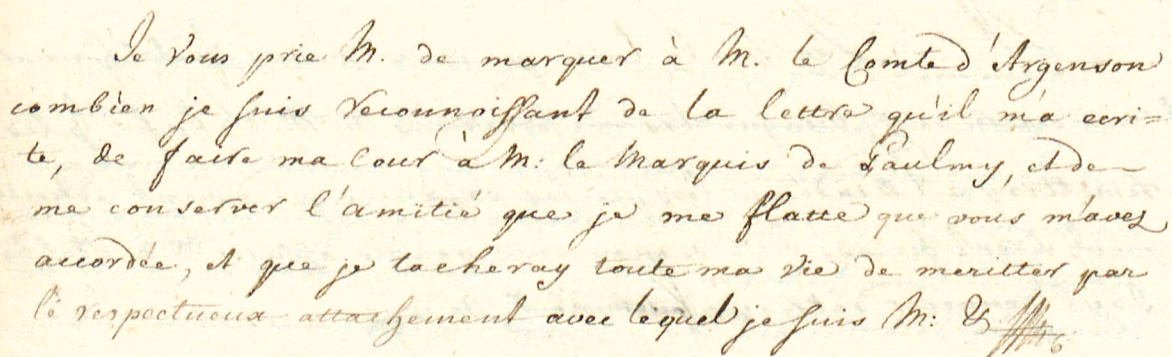 Je vous prie M. de marquer à M. le Comte d'Argenson
combien je suis reconnoissant de la lettre qu'il m'a ecri=
te, de faire ma Cour à M: le Marquis de Paulmy, et de
me conserver l'amitié que je me flatte que vous m'avez
accordée, et que je tacheray toute ma vie de meritter par
le respectueux attachement avec lequel je suis M: &